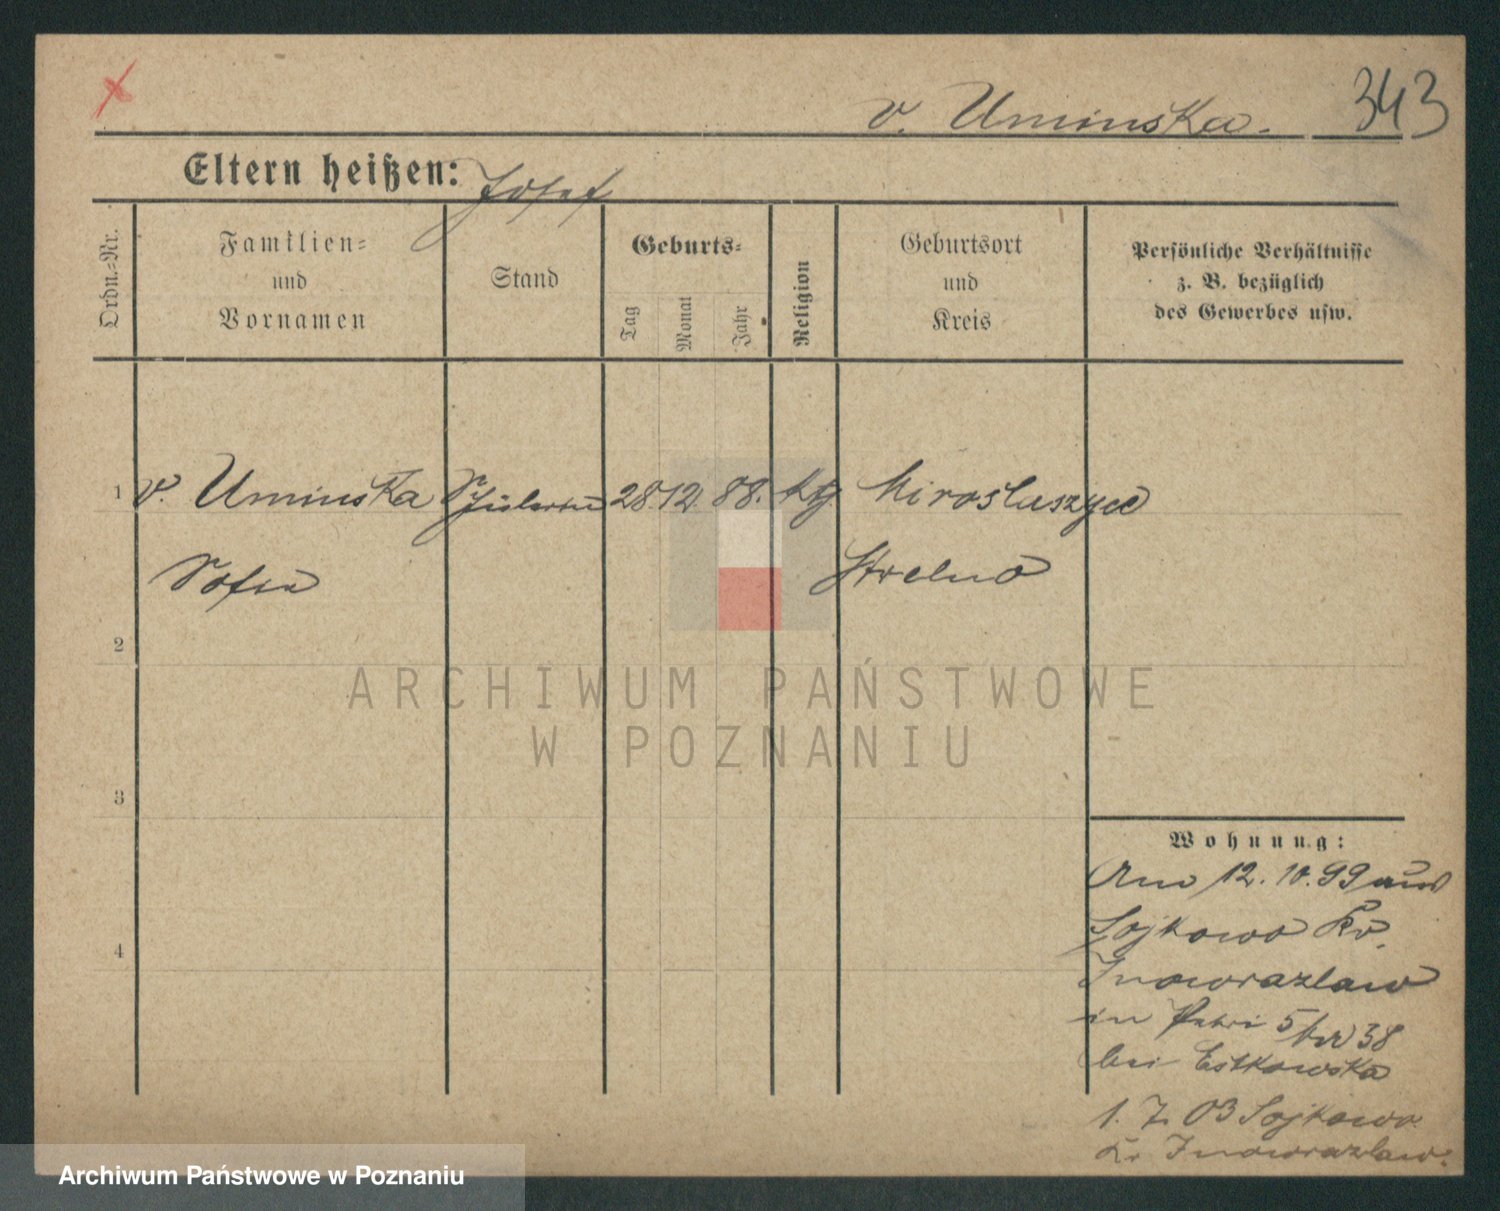 v. Uminska. 343
Eltern heißen: Josef
Ordn.-Nr.
Familien-
und
Vornamen
Stand
Geburts-
Tag
Monat
Jahr
Religion
Geburtsort
und
Kreis
Persönliche Verhältnisse
z. B. bezüglich
des Gewerbes usw.
1 v. Uminska Schülerin 28. 12. 88. kth. Miroslaszyce
Sofia Strelno
2
ARCHIWUM PAŃSTWOWE
W POZNANIU
3
Wohnung:
Am 12. 10. 99 aus
4 Sojkowo Kr.
Inowrazlaw
in Petri 5 38
bei Estkowska
1. 7. 03 Sojkowo
Kr Inowrazlaw.
Archiwum Państwowe w Poznaniu